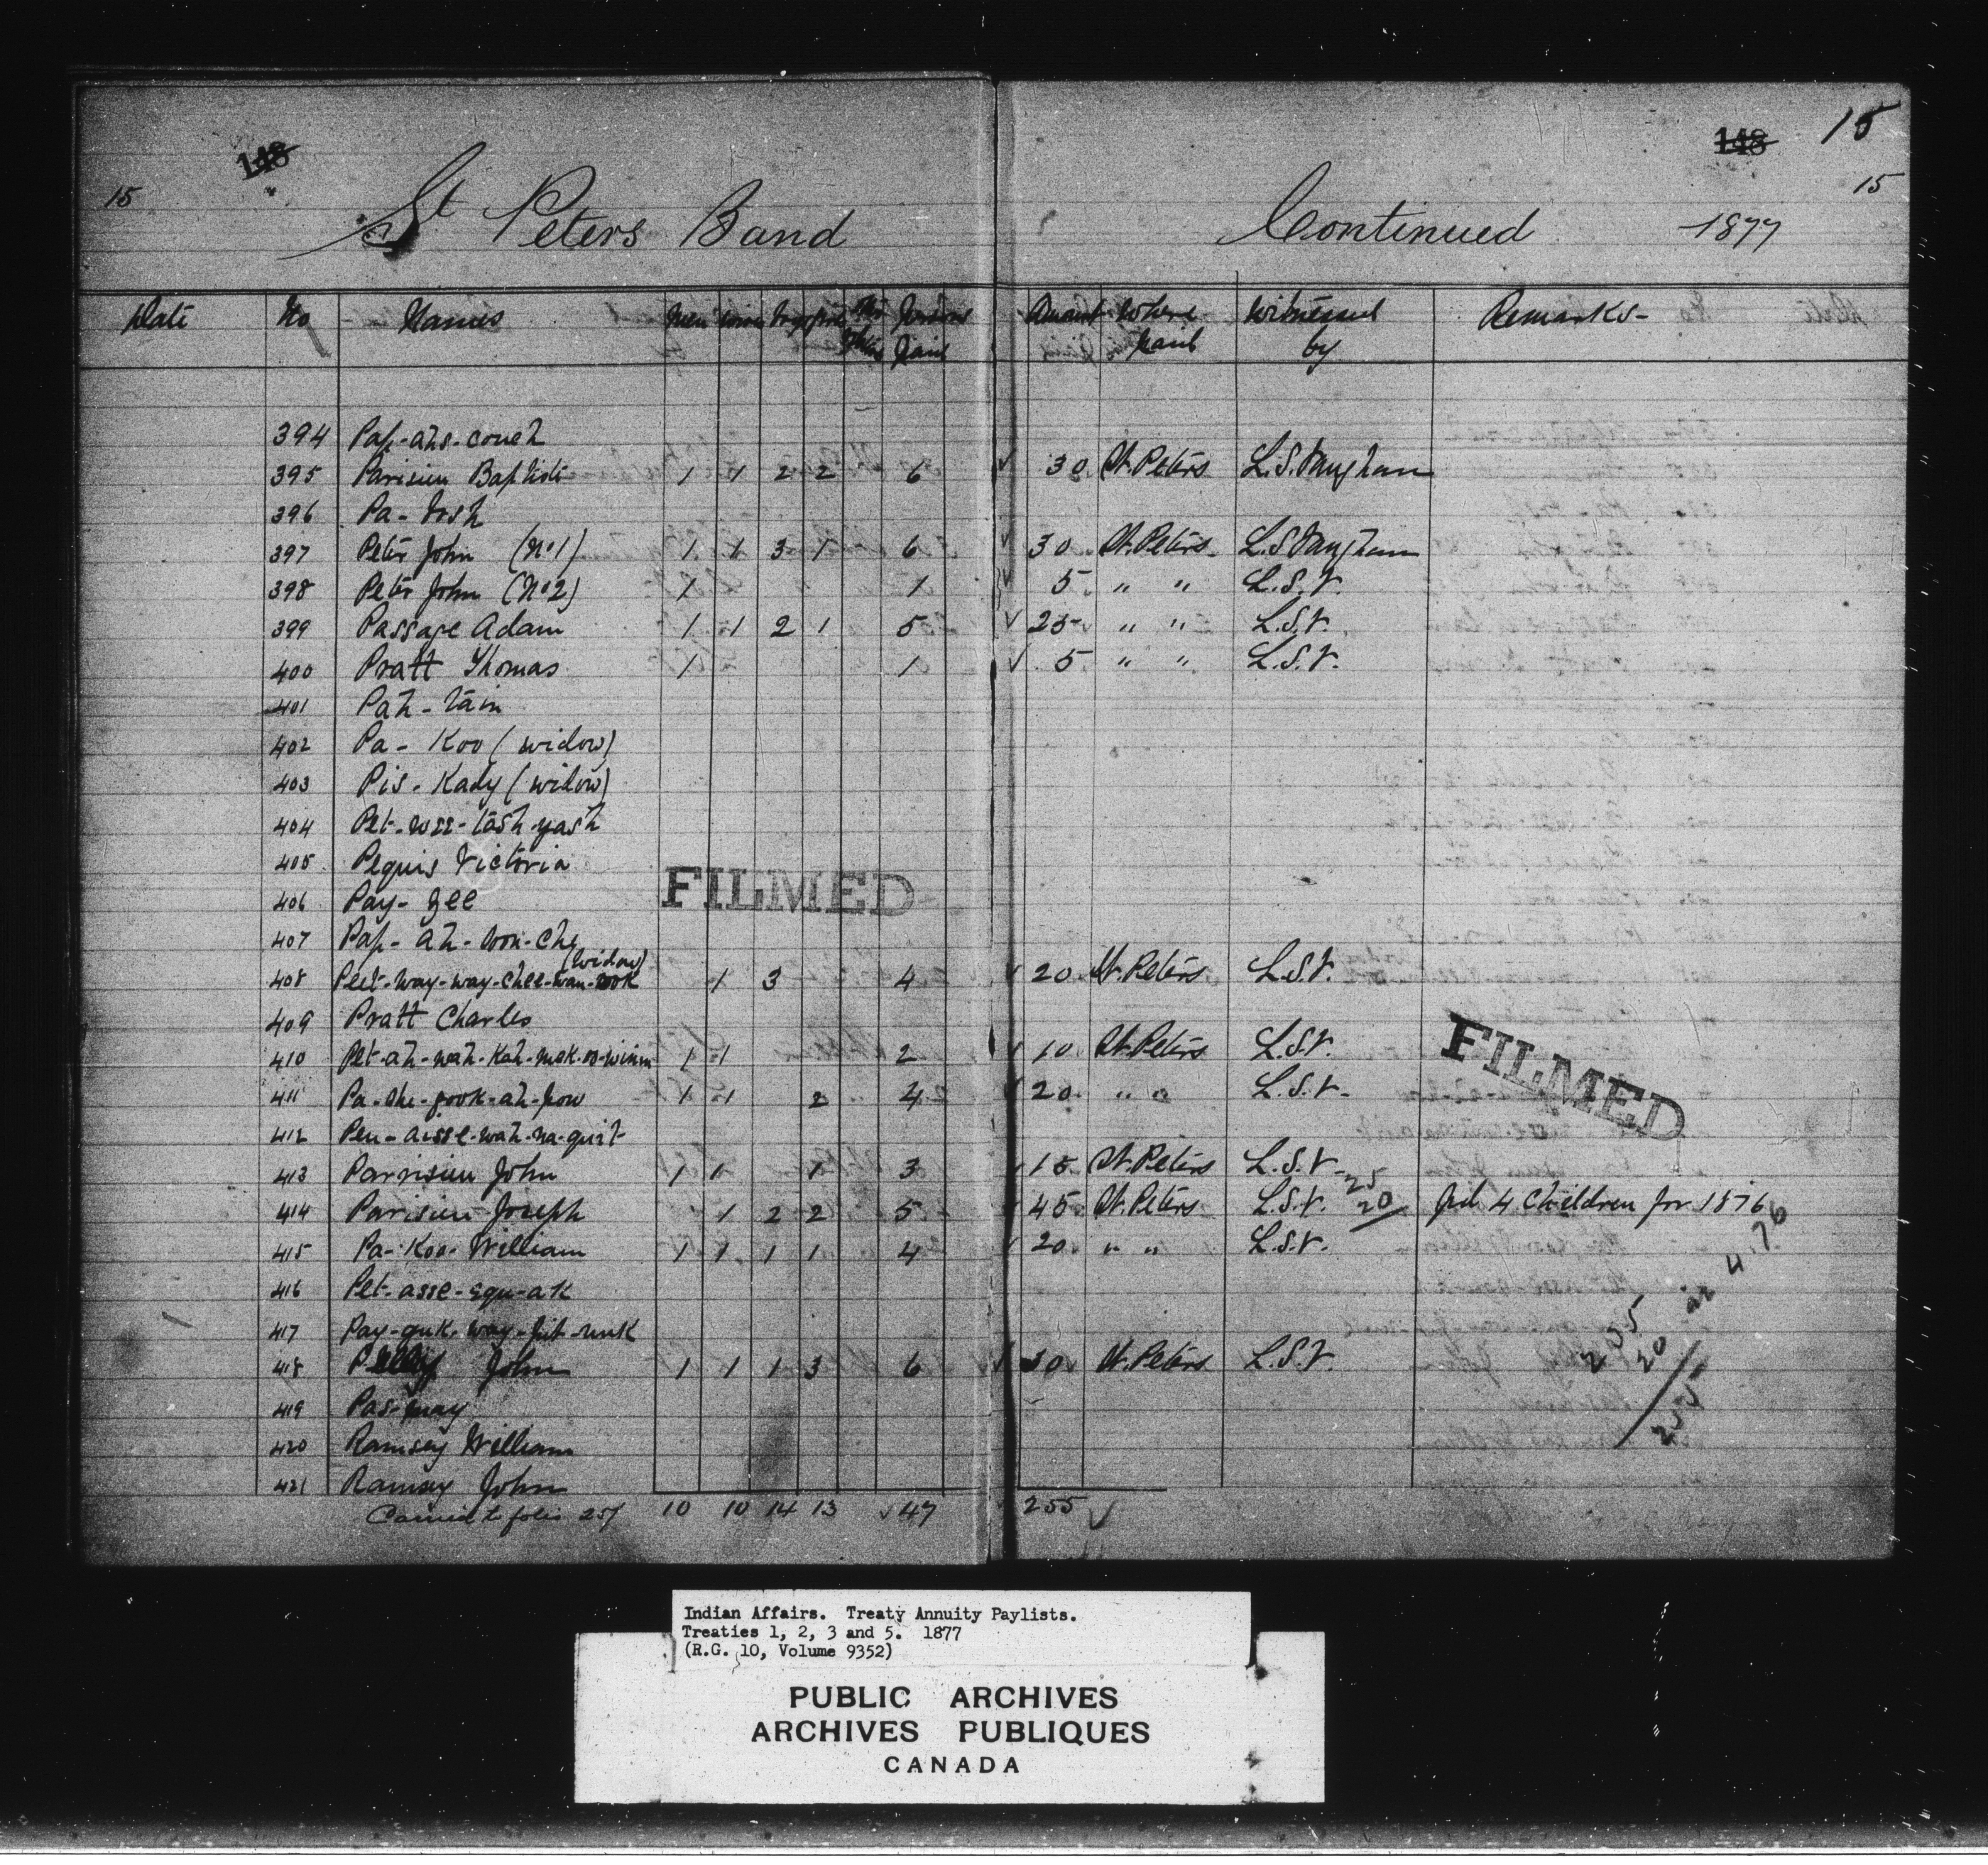 148
15
St Peters Band
148 15
15
Continued 1877
Date No Names Men Women Boys Girls Persons Paid Amount Where paid Witnessed by Remarks
394 Pap-ahs-couch
395 Parisien Baptiste 1 1 2 2 6 ✓ 30 St. Peters L.S. Vaughan
396 Pa-tosh
397 Peter John (No 1) 1 1 3 1 6 ✓ 30 St. Peters L.S. Vaughan
398 Peter John (No 2) 1 1 ✓ 5 " " L.S.V.
399 Passage Adam 1 1 2 1 5 ✓ 25 " " L.S.V.
400 Pratt Thomas 1 1 ✓ 5 " " L.S.V.
401 Pah-tain
402 Pa-Koo (widow)
403 Pis-Kady (widow)
404 Pet-wee-tash-yash
405 Peguis Victoria
406 Pay-zee
FILMED
407 Pap-ah-
408 Peet-way-way-chee-wan-ook (widow) 1 3 4 ✓ 20 St. Peters L.S.V.
409 Pratt Charles
410 Pet-ah-wah-Kah-mok-oo-winin 1 1 2 ✓ 10 St. Peters L.S.V.
411 Pa-she-gook-ah-pow 1 1 2 4 ✓ 20 " " L.S.V.
FILMED
412 Peu-aisse-wah-na-quit
413 Parrisien John 1 1 1 3 ✓ 15 St. Peters L.S.V.
414 Parisien Joseph 1 2 2 5 ✓ 45 St. Peters L.S.V. 25 20 Pd 4 Children for 1876
415 Pa-Koo-William 1 1 1 1 4 ✓ 20 " " L.S.V.
416 Pet-asse-equ-ak
417 Pay-guk-way-pit-unk
418 John 1 1 1 3 6 ✓ 30 St. Peters L.S.V.
419 Pas-may
420 Ramsey William
421 Ramsay John
235 20 ar 4.76
255
Carried to folio 257 10 10 14 13 ✓ 47 255 ✓
Indian Affairs. Treaty Annuity Paylists.
Treaties 1, 2, 3 and 5. 1877
(R.G. 10, Volume 9352)
PUBLIC ARCHIVES
ARCHIVES PUBLIQUES
CANADA